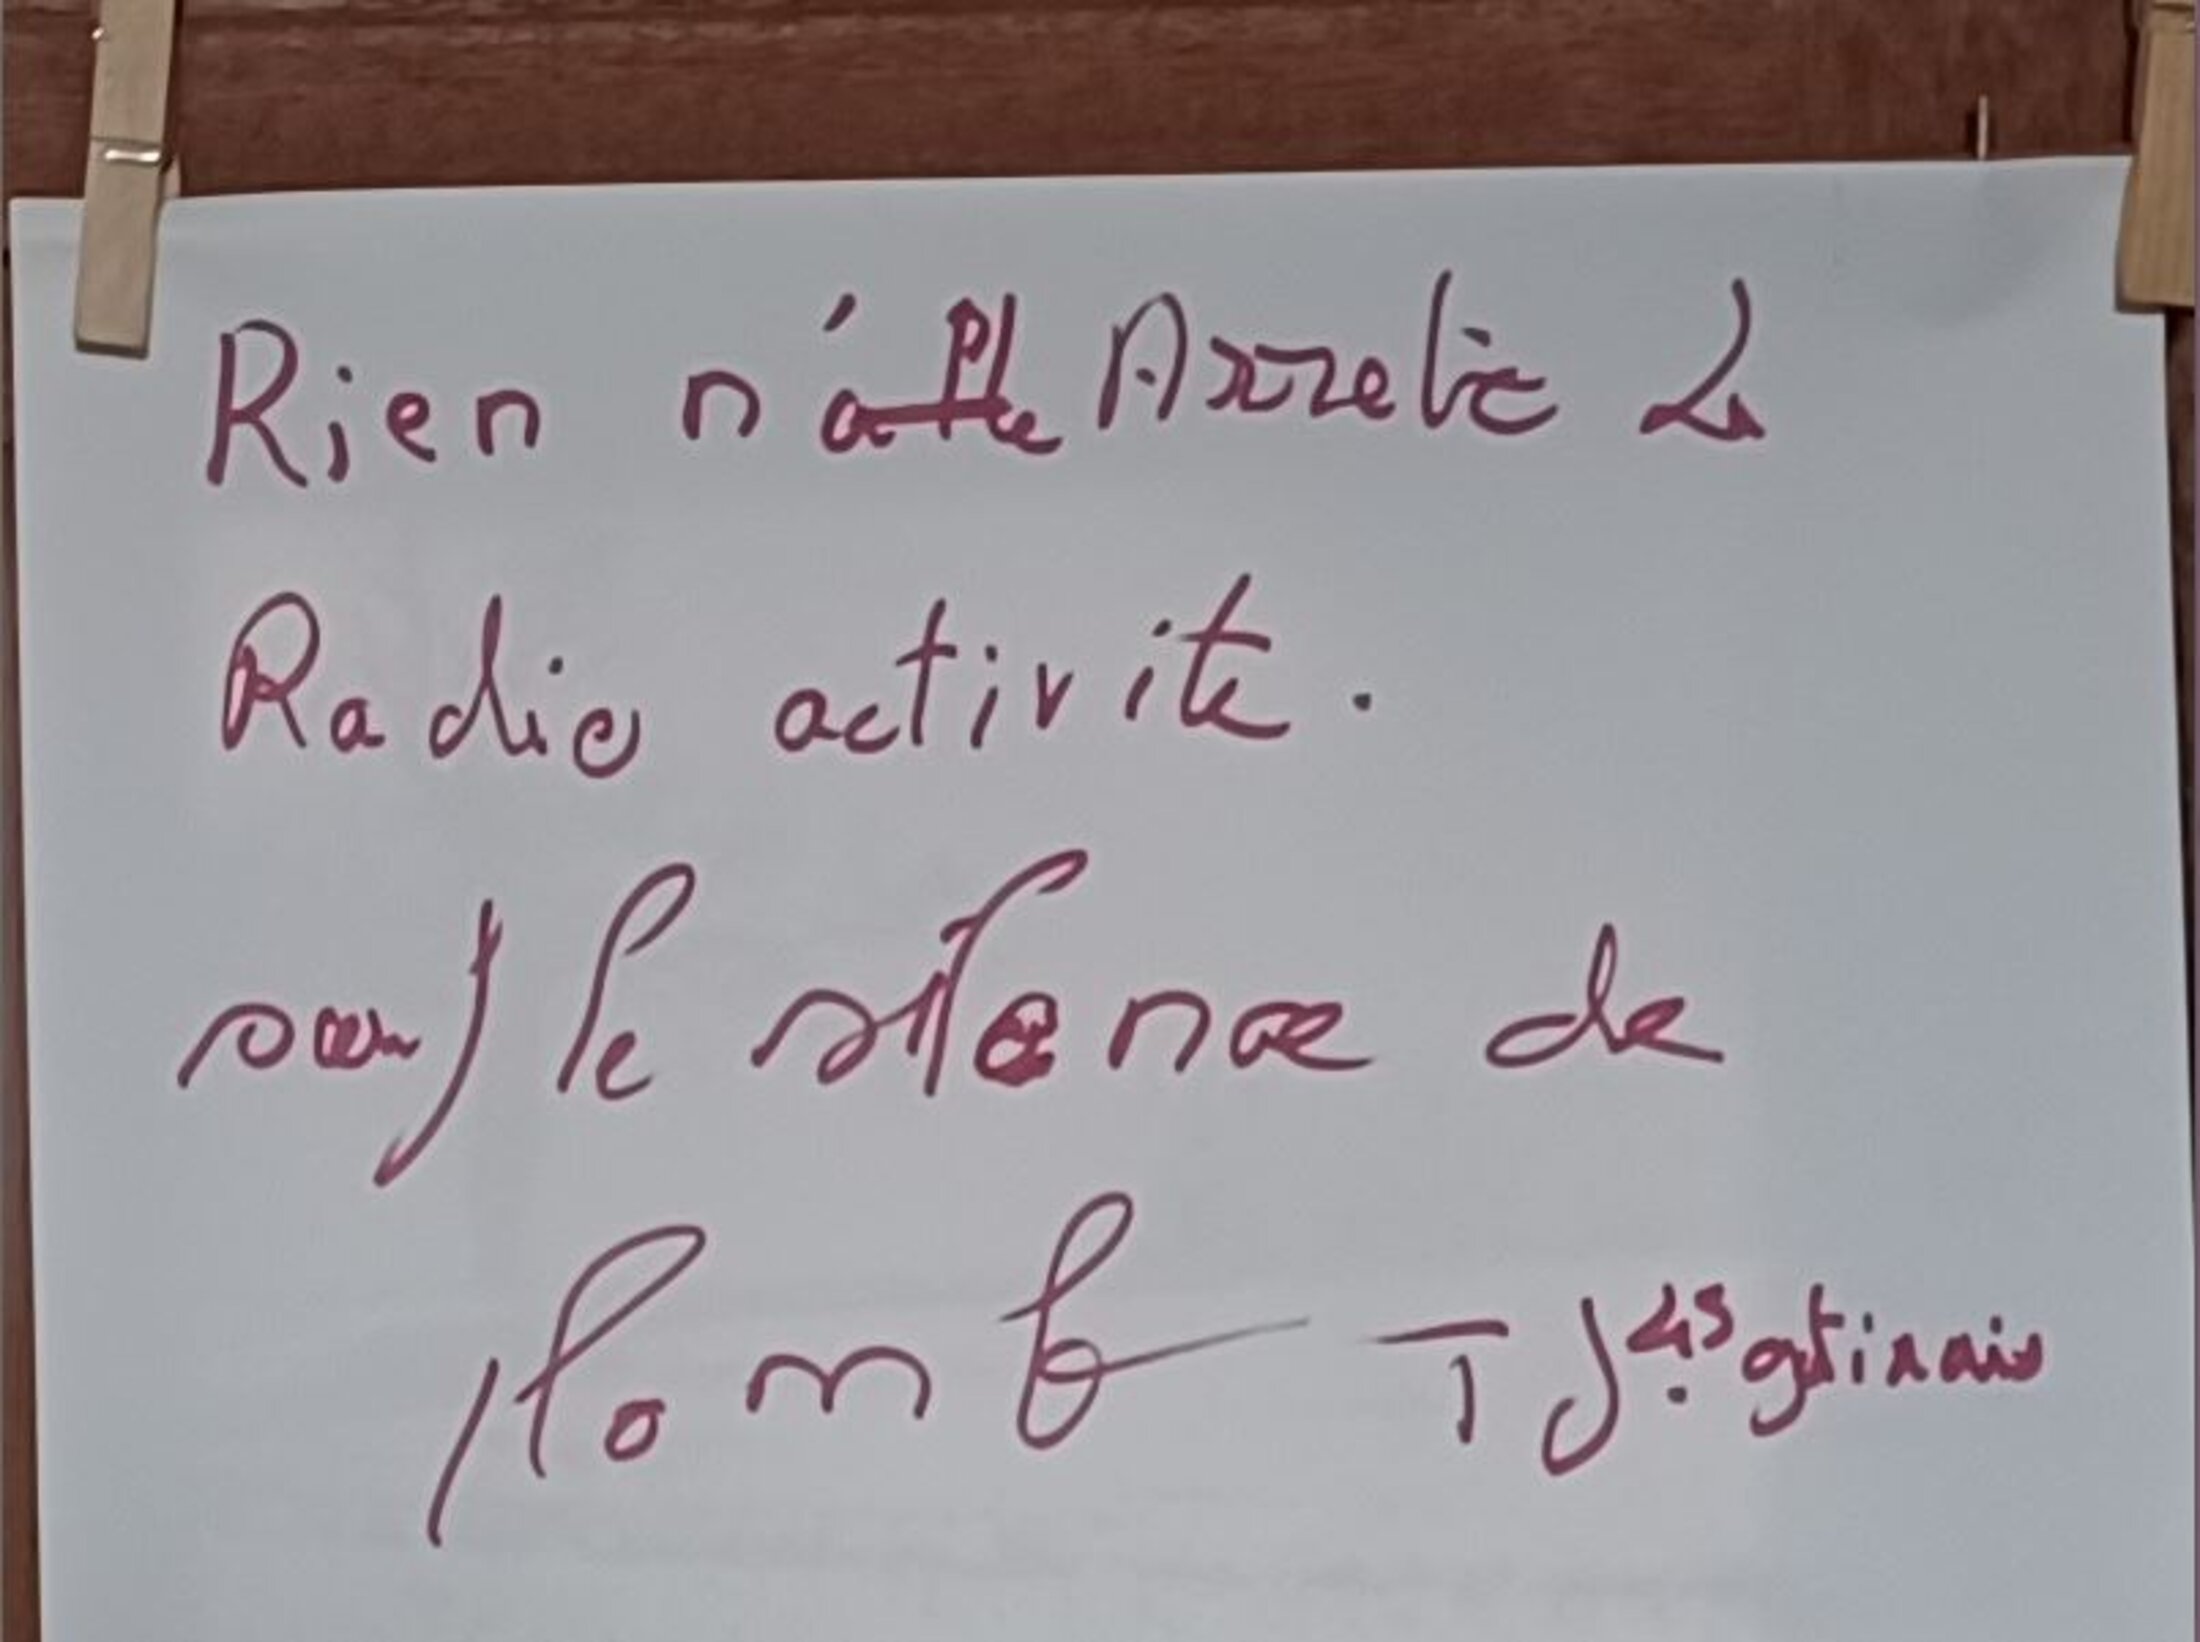 Rien n'Arrete La
Radio activité.
sauf le silence de
plomb